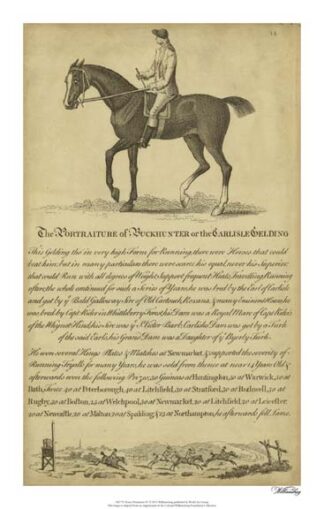 The PORTRAITURE of BUCKHUNTER or the CARLISLE GELDING
This Gelding tho in very high Form for Running, there were Horses that could
beat him; but in many particulars there were scarce his equal, never his Superior
that could Run with all degrees of Weight, Support frequent Heats, Travelling, Running
after; the whole continued for such a Series of Years, he was bred by the Earl of Carlisle
and got by ye Bald Galloway Sire of Old Cartouch, Roxana, & many Eminent
was bred by Capt Rider in Whittlebury Forest, his Dam was a Royal Mare of Capt Rider's
of the Whynot Kind, his Sire was ye St Victor Barb; Carlisle's Dam was got by a Turk
of the said Earl's, his Grand Dam was a Daughter of ye Byerly Turk.
He won several Kings Plates & Matches at Newmarket, & supported the severity of
Running Tryalls for many Years, he was sold from thence at near 12 Years Old, &
afterwards won the following Prizes, 30 Guineas at Huntingdon, 30 at Warwick, 50 at
Bath, 40 at Peterborough, 40 at Litchfield, 30 at Stratford, 30 at Bicknell, 30 at
Rugby, 20 at Bolton, 25 at Welchpool, 50 at Newmarket, 20 at Litchfield, 20 at Leicester
20 at Newcastle, 20 at Malton 20 at Spalding, & 25 at Northampton, he afterwards fell Lame.
Williamsburg